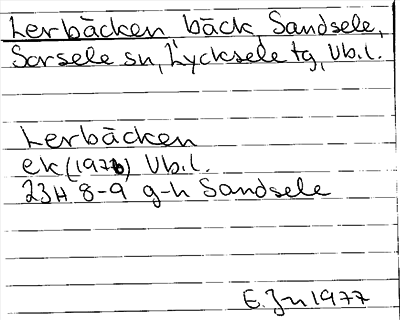 Lerbäcken bäck, Sandsele,
Sorsele sn, Lycksele tg, Vb.l.
Lerbäcken
ek (1976) Vb.l.
23H 8-9 g-h Sandsele
E. Jn 1977